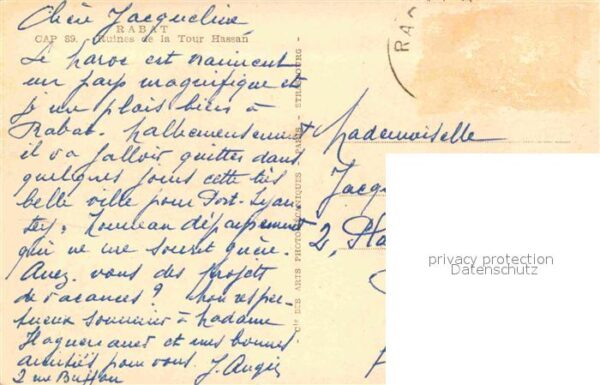 Chère Jacqueline
RABAT
CAP 89. Ruines de la Tour Hassan
Le Maroc est vraiment
un pays magnifique et
je me plais bien à
Rabat. Malheureusement
il va falloir quitter dans
quelques jours cette très
belle ville pour Port-Lyau-
tey, nouveau département
qui ne me sourit guère.
Avez-vous des projets
de vacances? Mon respec-
tueux souvenir à Madame
et mes bonnes
amitiés pour vous. J. Augier
2 rue Buffon
CIE DES ARTS PHOTOMÉCANIQUES - PARIS - STRASBOURG -
RA
Mademoiselle
Jacqu
2, Pla
privacy protection
Datenschutz